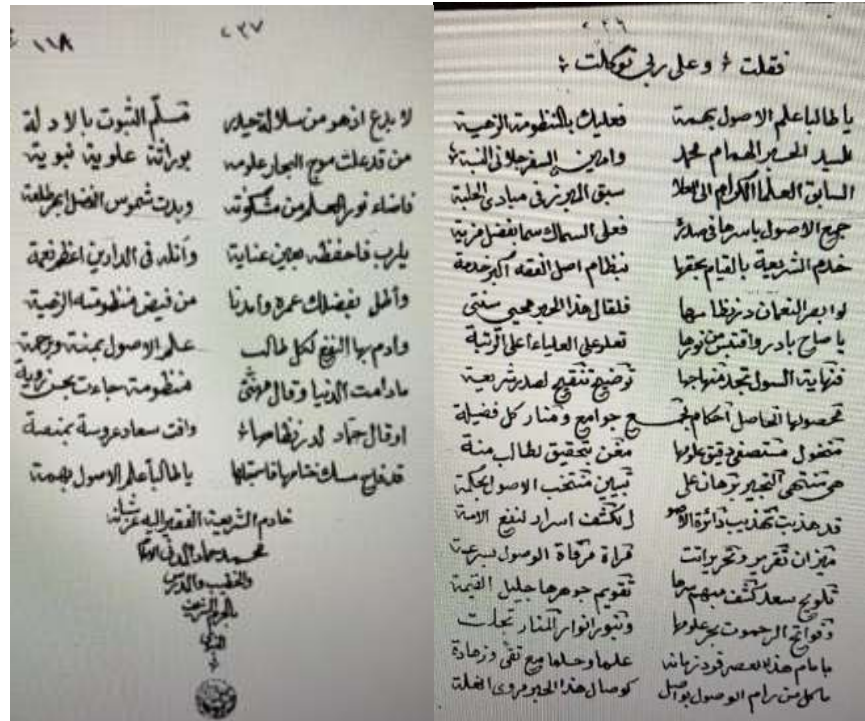 ٢٢٦
فقلت * وعلى ربي توكلت *
يا طالبا علم الاصول بهمة فعليك بالمنظومة الزهية
للسيد الحسيب الهمام محمد وامين السفرجلاني النسبة
السابق العلما الكرام الى العلا سبق المبرز في ميادي الحلبة
جمع الاصول باسرها في صدره فعلى السماك سما بفضل مزية
خدم الشريعة بالقيام بحقها بنظام اصل الفقه اكبر خدمة
لو ابصر النعمان در نظامها فلقال هذا الحبر محيي سنتي
يا صاح بادر واقتبس من نورها تعلو على العلياء اعلى الرتبة
فنهاية السول تجد منهاجها توضيح تنقيح لصدر شريعة
محصولها الحاصل احكام جمع جوامع ومنار كل فضيلة
منخول مستصفى دقيق علومها مغن بتحقيق لطالب منة
هي منتهى التحرير برهان على تبيين منتخب الاصول بحكمة
قد هذبت تهذيب دائرة الاصول لكشف اسرار لنفع الامة
ميزان تقرير وتحرير اتت مرآة مرقاة الوصول بسرعة
تلويح سعد كشف مبهم سرها تقويم جوهرها جليل القيمة
وفواتح الرحموت بحر علومها وبنور انوار المنار تجلت
هذا العصر فرد زمانه علما وحلما مع تقى وزهادة
ما كل من رام الوصول بواصل كوصال هذا الحبر مروي الغلة
٢٢٧ ١١٨
لا بدع اذ هو من سلالة حيدر مسلّم الثبوت بالادلة
من قد علت موج البحار علومه بوراثة علوية نبوية
فاضاء نور العلم من مشكوته وبدت شموس الفضل ابهر طلعة
يا رب فاحفظه بعين عناية وأنله في الدارين اعظم نعمة
وأطل بفضلك عمره وامدنا من فيض منظومته الزهية
وادم بها النفع لكل طالب علم الاصول بمنة ورحمة
ما دامت الدنيا وقال مهنئ منظومة جاءت بحسن روية
او قال حماد لدر نظامها وافت سعاد عروسة بمنصة
قد فاح مسك ختامها يا طالبا علم الاصول بهمة
خادم الشريعة الفقير اليه عز شأنه
محمد حماد
والخطيب والمدرس
بالحرم الشريف